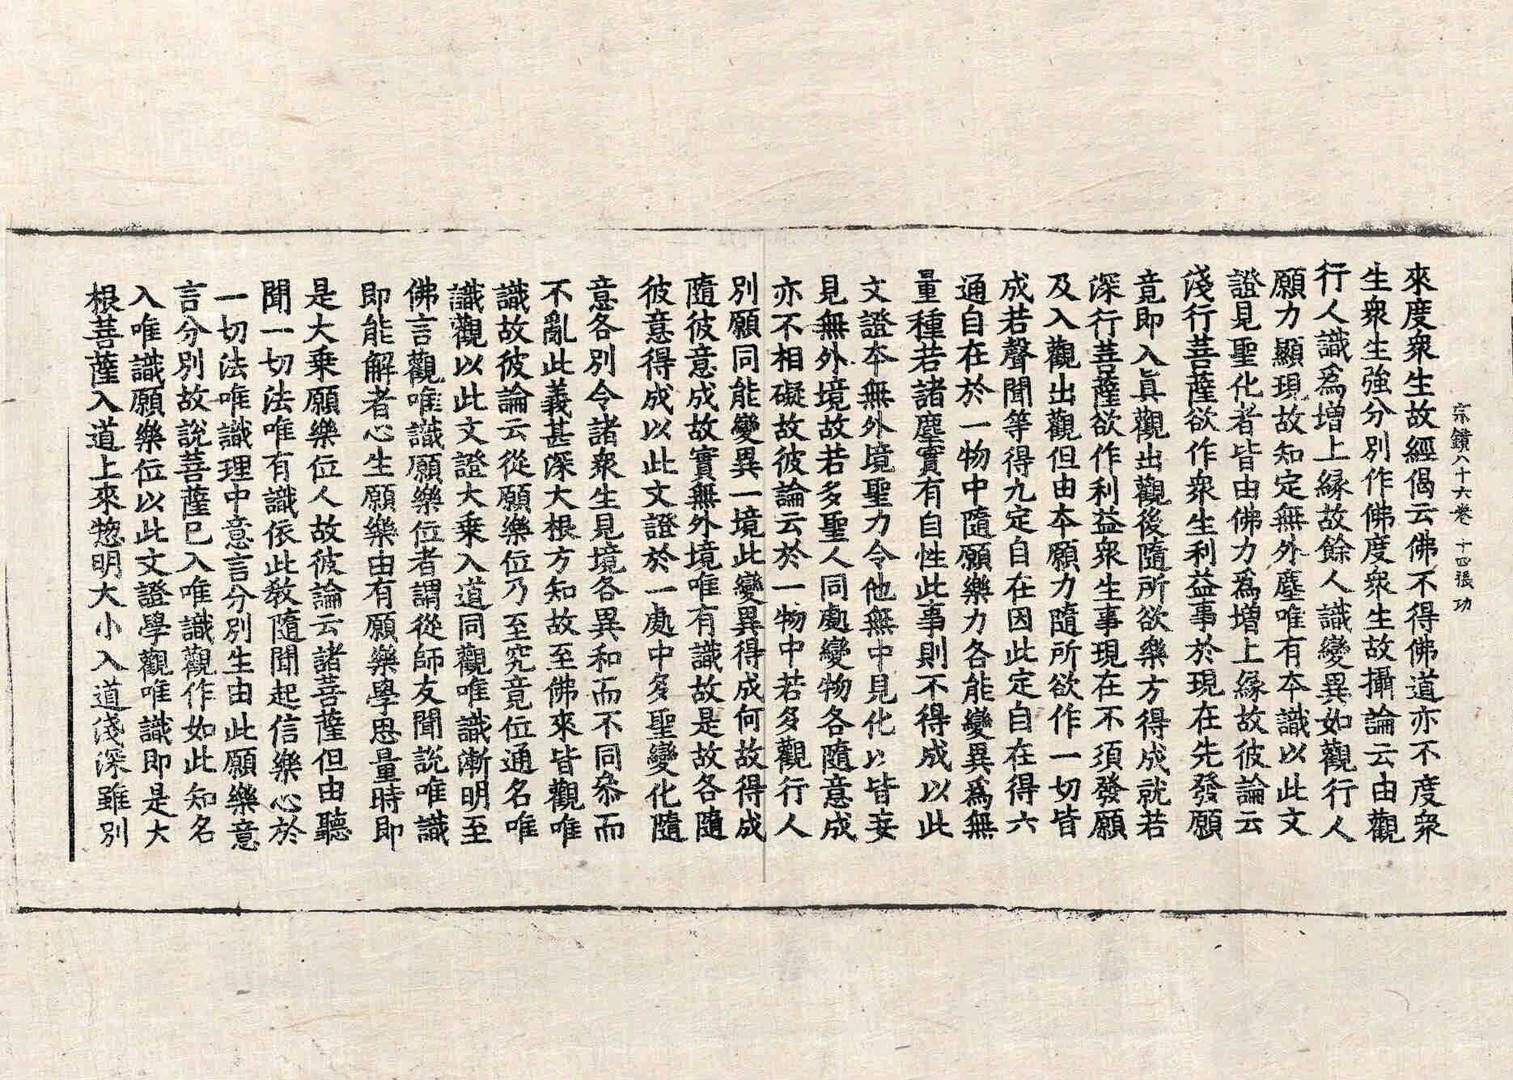 宗鏡八十六卷 十四張 功
來度衆生故經偈云佛不得佛道亦不度衆
生衆生強分別作佛度衆生故攝論云由觀
行人識爲增上縁故餘人識變異如觀行人
願力顯現故知定無外塵唯有本識以此文
證見聖化者皆由佛力爲增上縁故彼論云
淺行菩薩欲作衆生利益事於現在先發願
竟即入眞觀出觀後隨所欲樂方得成就若
深行菩薩欲作利益衆生事現在不須發願
及入觀出觀但由本願力隨所欲作一切皆
成若聲聞等得九定自在因此定自在得六
通自在於一物中隨願樂力各能變異爲無
量種若諸塵實有自性此事則不得成以此
文證本無外境聖力令他無中見化以皆妄
見無外境故若多聖人同處變物各隨意成
亦不相礙故彼論云於一物中若多觀行人
別願同能變異一境此變異得成何故得成
隨彼意成故實無外境唯有識故是故各隨
彼意得成以此文證於一處中多聖變化隨
意各別令諸衆生見境各異和而不同叅而
不亂此義甚深大根方知故至佛來皆觀唯
識故彼論云從願樂位乃至究竟位通名唯
識觀以此文證大乘入道同觀唯識漸明至
佛言觀唯識願樂位者謂從師友聞説唯識
即能解者心生願樂由有願樂學思量時即
是大乘願樂位人故彼論云諸菩薩但由聽
聞一切法唯有識依此教隨聞起信樂心於
一切法唯識理中意言分別生由此願樂意
言分別故説菩薩巳入唯識觀作如此知名
入唯識願樂位以此文證學觀唯識即是大
根菩薩入道上來惣明大小入道淺深雖別